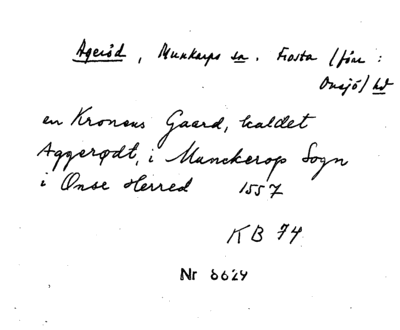 Ageröd, Munkarps sn. Frosta (förr:
Onsjö) hd
en Kronens Gaard, kaldet
Aggerødt, i Munckerop Sogn
i Onse Herred 1557
KB 74
Nr 8629